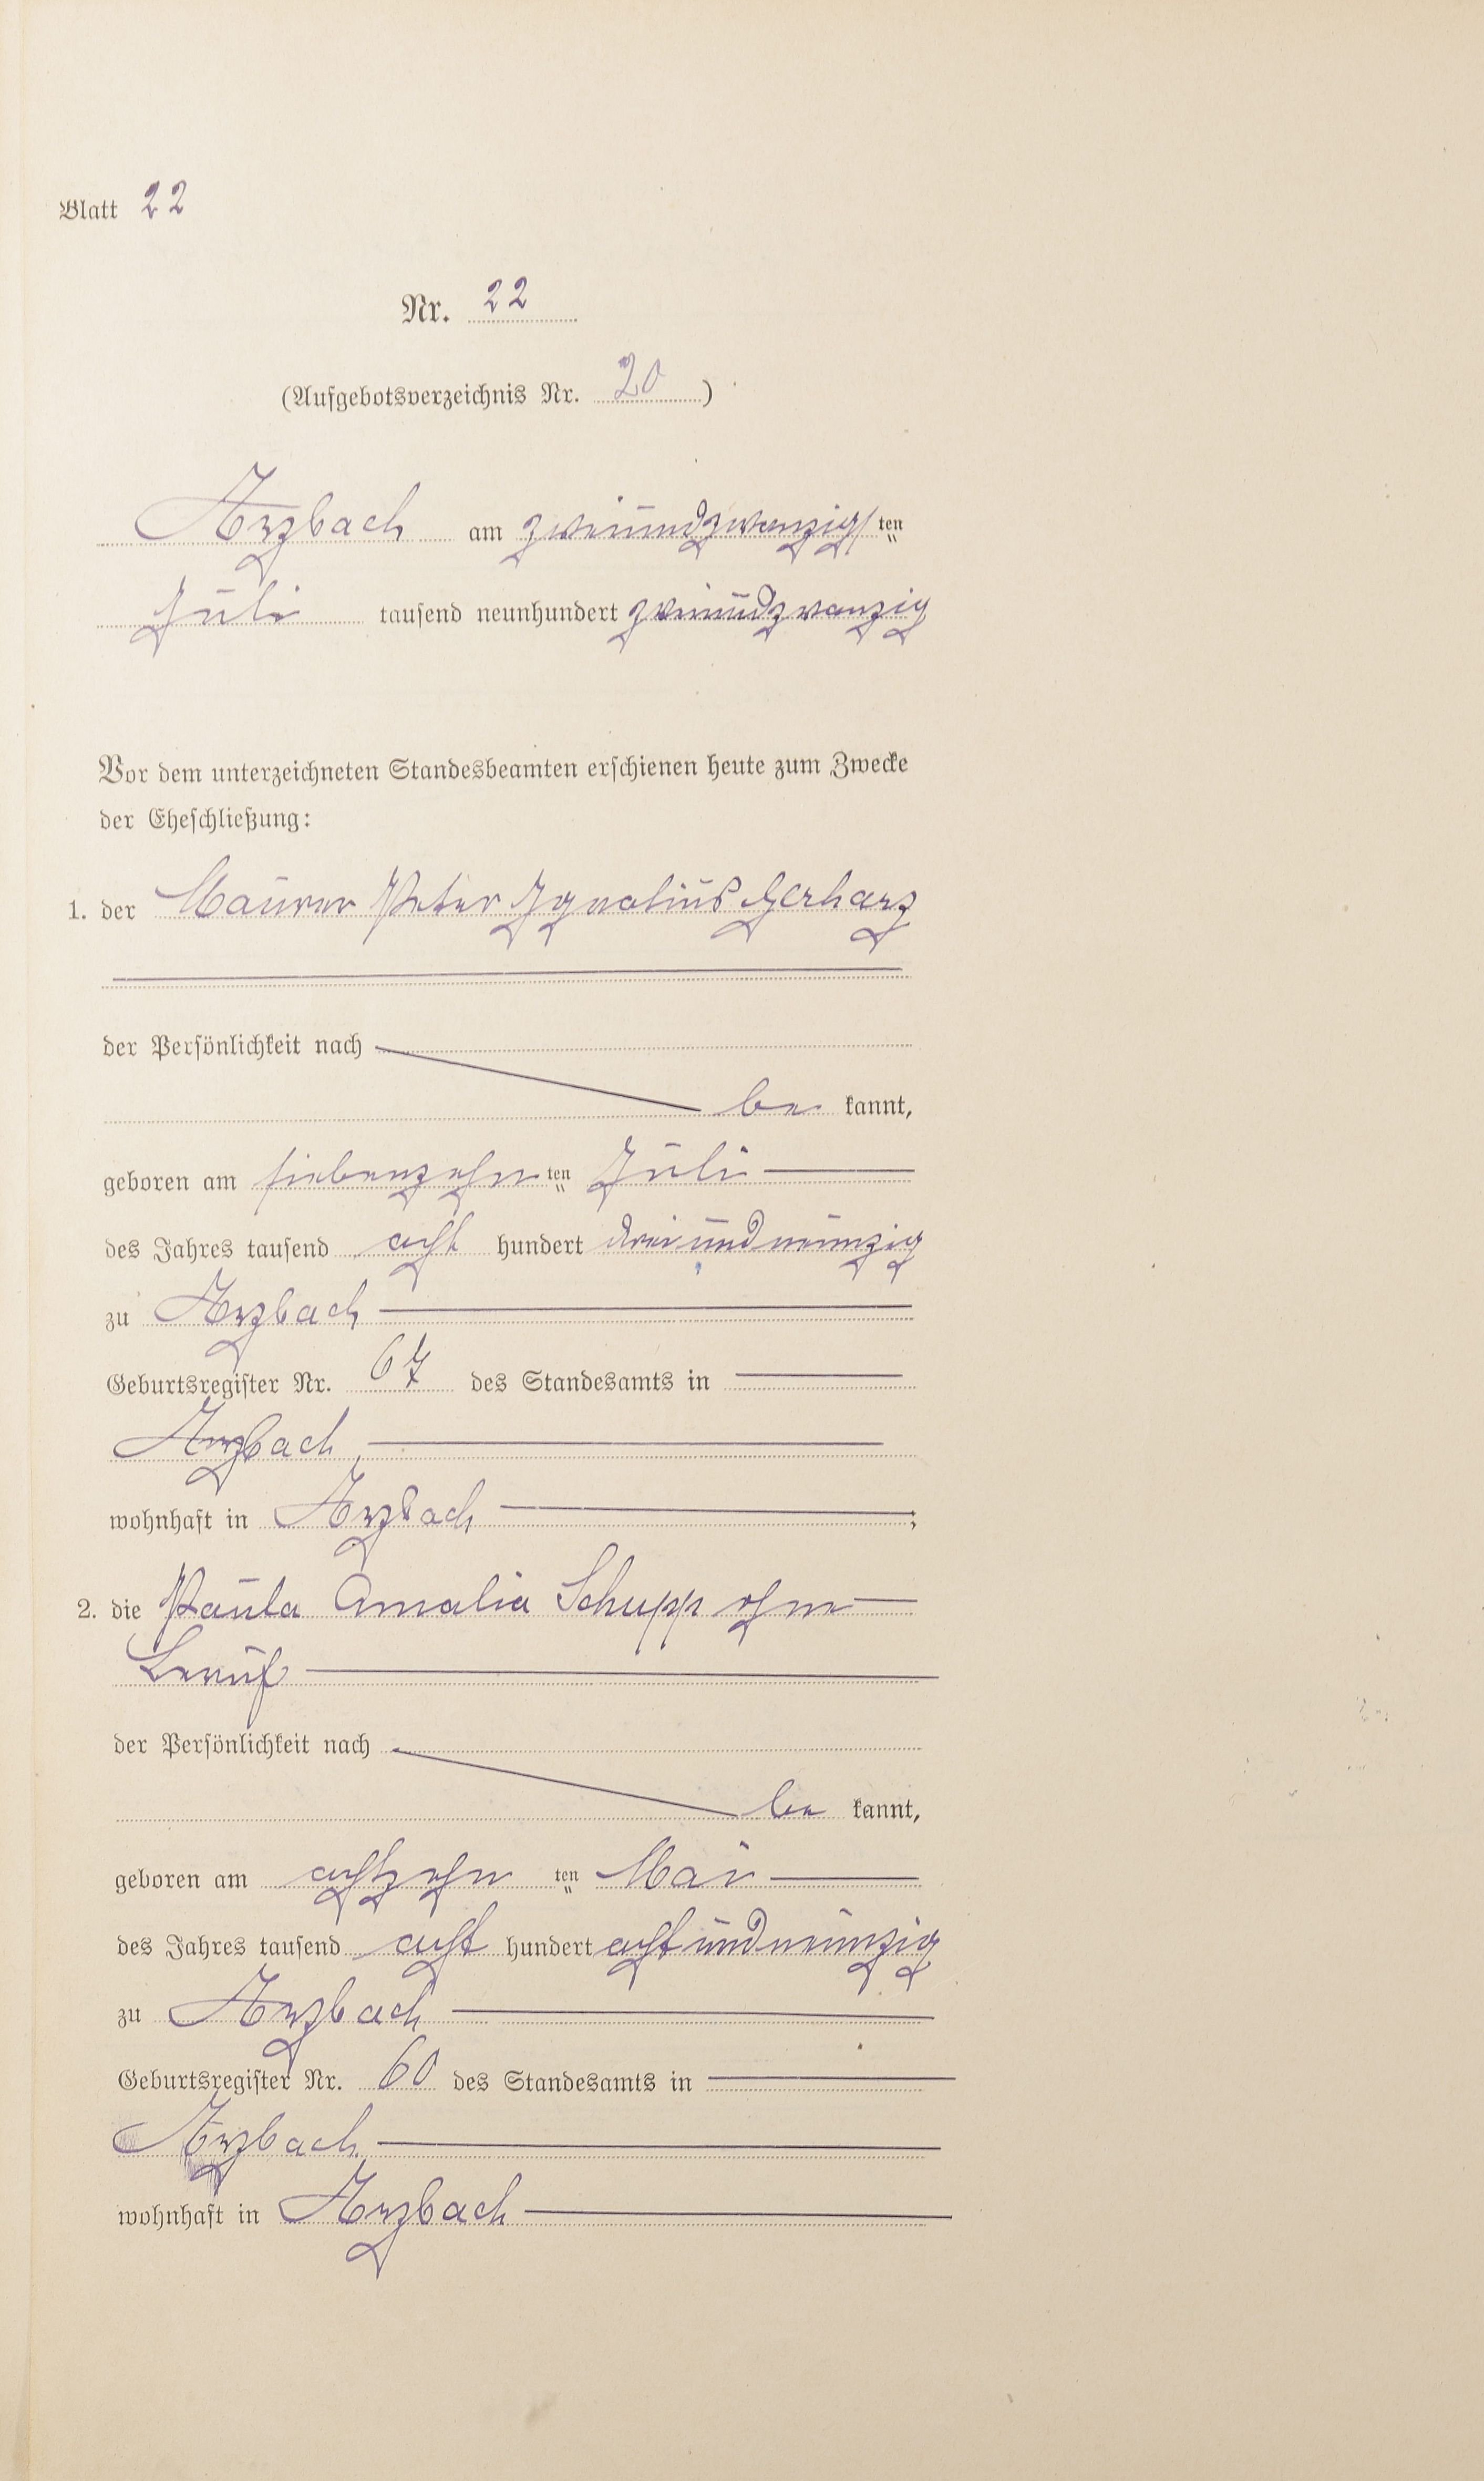 Blatt 22
Nr. 22
(Aufgebotsverzeichnis Nr. 20)
Arzbach am zweiundzwanzigsten
Juli tausend neunhundert zweiundzwanzig
Vor dem unterzeichneten Standesbeamten erschienen heute zum Zwecke
der Eheschließung:
1. der Maurer Peter Ignatius Gerharz
der Persönlichkeit nach
be kannt,
geboren am siebenzehn ten Juli
des Jahres tausend acht hundert dreiundneunzig
zu Arzbach
Geburtsregister Nr. 67 des Standesamts in
Arzbach
wohnhaft in Arzbach ;
2. die Paula Amalia Schupp ohne
Beruf
der Persönlichkeit nach
be kannt,
geboren am achtzehn ten Mai
des Jahres tausend acht hundert achtundneunzig
zu Arzbach
Geburtsregister Nr. 60 des Standesamts in
Arzbach
wohnhaft in Arzbach